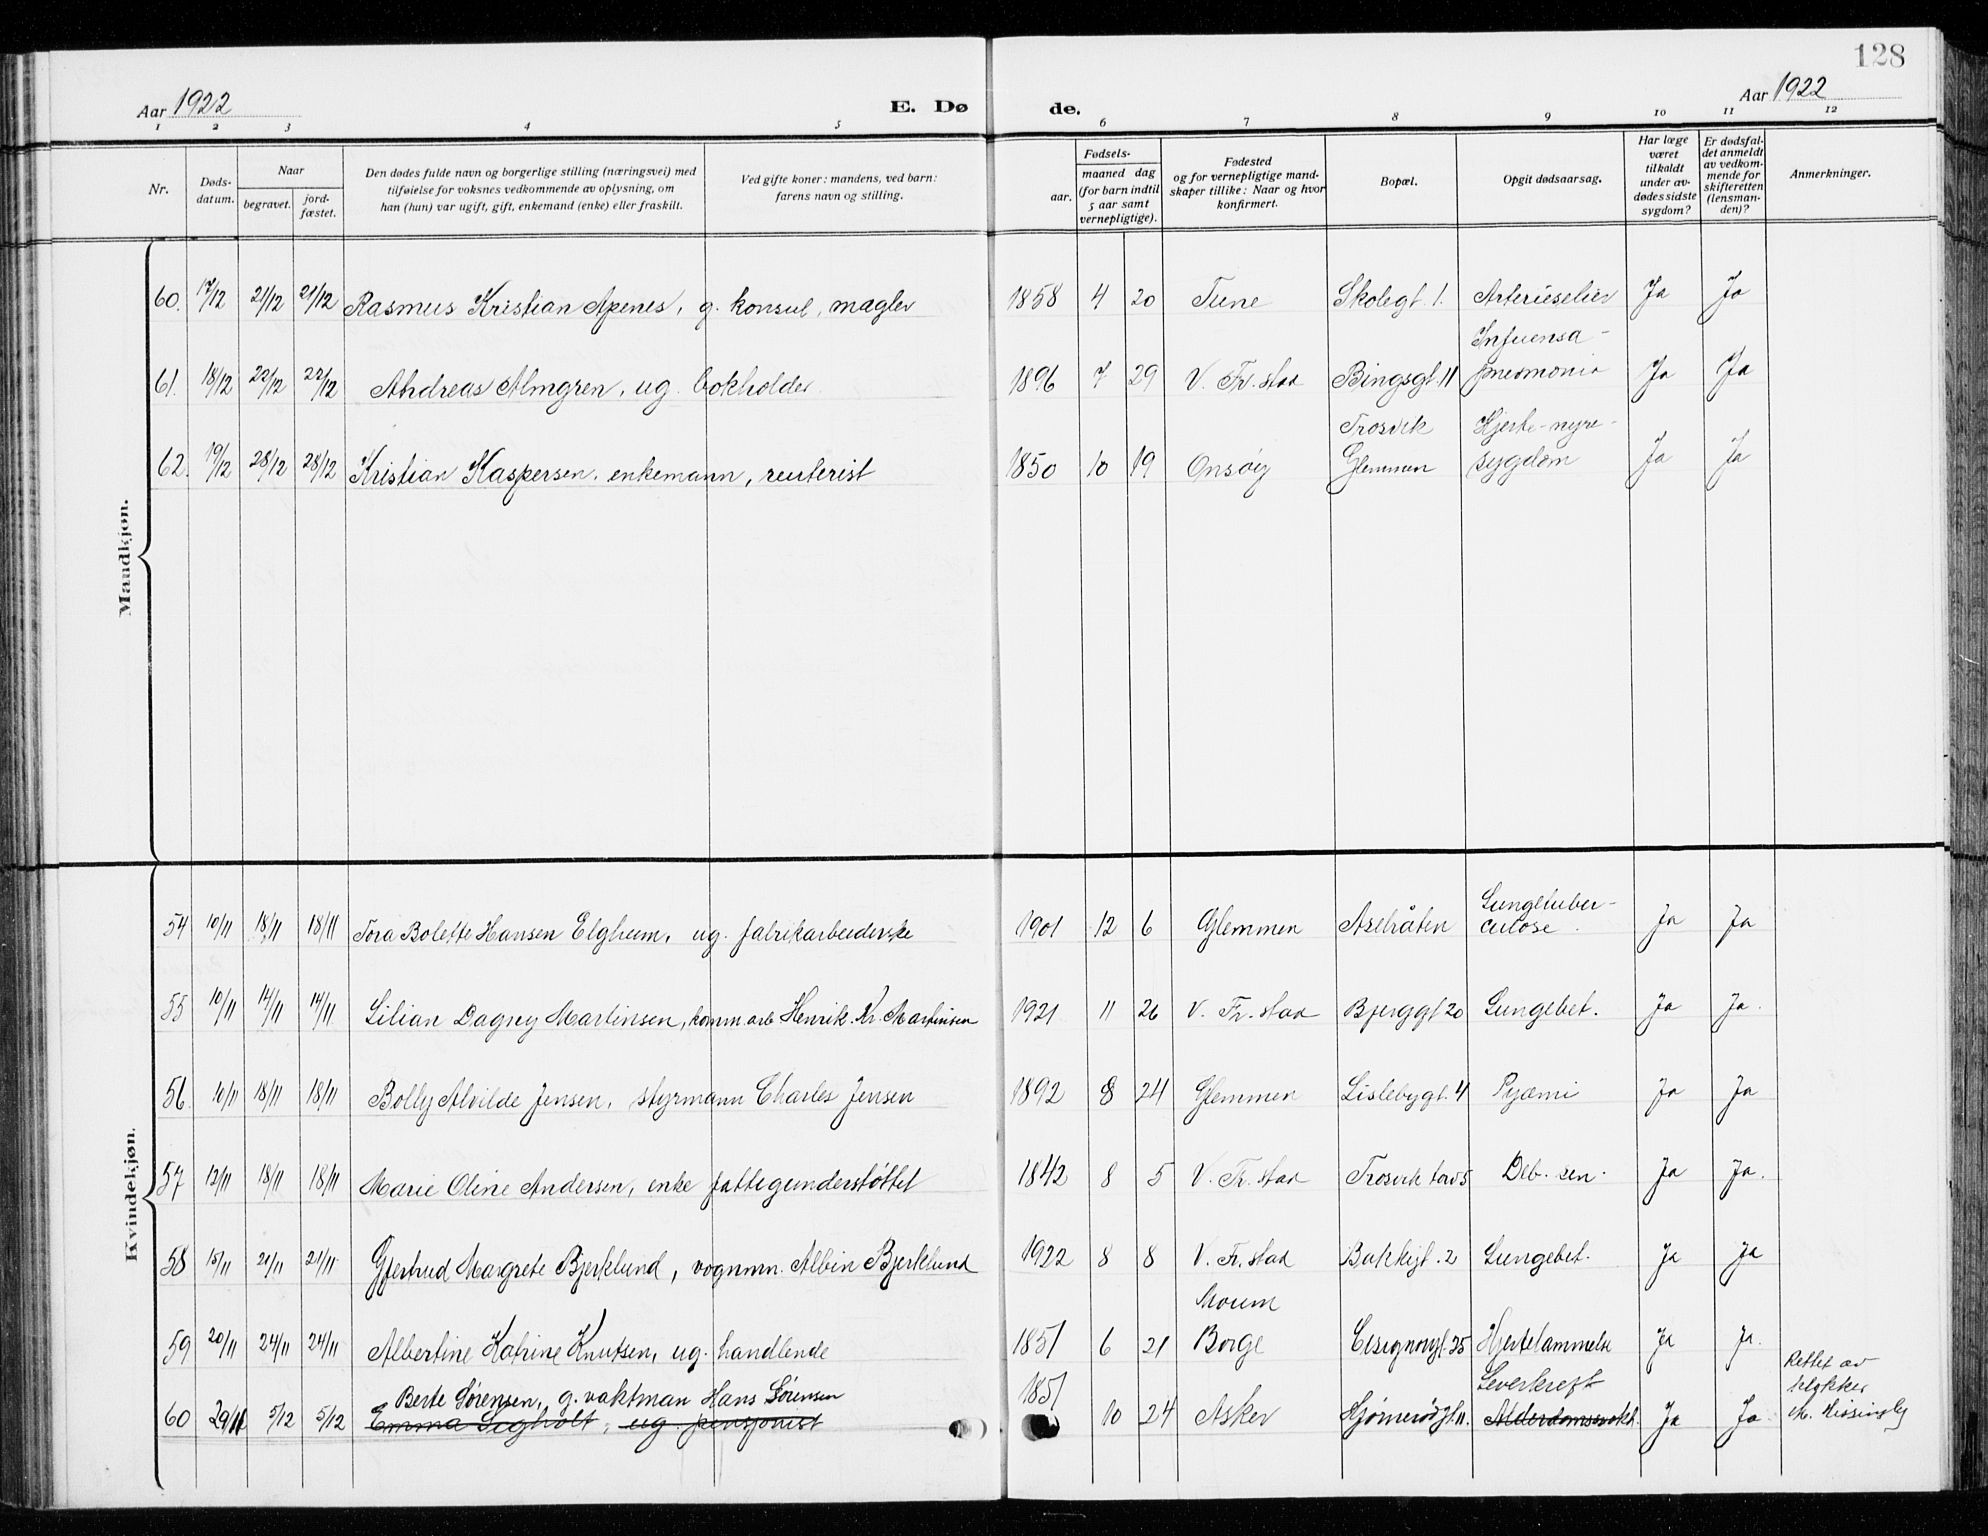 128
Aar 1922 E. Dø de. Aar 1922
1 2 3 4 5 6 7 8 9 10 11 12
Nr.
Døds-
datum.
Naar
begravet.
jord-
fæstet.
Den dødes fulde navn og borgerlige stilling (næringsvei) med
tilføielse for voksnes vedkommende av oplysning, om
han (hun) var ugift, gift, enkemand (enke) eller fraskilt.
Ved gifte koner: mandens, ved barn:
farens navn og stilling.
Fødsels-
aar.
maaned dag
(for barn indtil
5 aar samt
vernepligtige).
Fødested
og for vernepligtige mand-
skaper tillike: Naar og hvor
konfirmert.
Bopæl.
Opgit dødsaarsag.
Har læge
været
tilkaldt
under av-
dødes sidste
sygdom?
Er dødsfal-
det anmeldt
av vedkom-
mende for
skifteretten
(lensman-
den)?
Anmerkninger.
Mandkjøn.
60. 17/12 21/12 21/12 Rasmus Kristian Apenes, g. konsul, megler 1858 4 20 Tune Skolegt. 1. Ja Ja
61. 18/12 22/12 22/12 Andreas Almgren, ug. bokholder 1896 7 29 V. Fr. stad Bingsgt. 11 Ja Ja
62. 19/12 28/12 28/12 Kristian Kaspersen, enkemann, renterist 1850 10 19 Onsøy Trosvik Glemmen Hjerte-nyre-sygdom Ja Ja
Kvindekjøn.
54 10/11 18/11 18/11 Tora Bolette Hansen Elgheim, ug. fabrikarbeiderske 1901 12 6 Glemmen Lungetuber-culose. Ja Ja
55 10/11 14/11 14/11 Lilian Dagny Martinsen, komm.arb Henrik Kr. Martinsen 1921 11 26 V. Fr. stad Bjerggt 20 Lungebet. Ja Ja.
56 10/11 18/11 18/11 Bolly Alvilde Jensen, styrmann Charles Jensen 1892 8 24 Glemmen Lislebygt. 4 Pyæmi Ja Ja
57 12/11 18/11 18/11 Marie Oline Andersen, enke fattigunderstøttet 1842 8 5 V. Fr. stad Trosvik torv 5 Deb. sen. Ja Ja.
58 15/11 21/11 21/11 Gjertrud Margrete Bjerklund, vognmn. Albin Bjerklund 1922 8 8 V. Fr. stad Bakkegt. 2 Lungebet. Ja Ja
59 20/11 24/11 24/11 Albertine Katrine Knutsen, ug. handlende 1851 6 21 Moum Borge Hjertelammelse Ja Ja.
60 29/11 5/12 5/12 Berte Sørensen, g. vaktman Hans Sørensen
Emma ug pensjonist 1851 10 24 Asker Leverkreft
Ja Ja
Rettet av
klokker